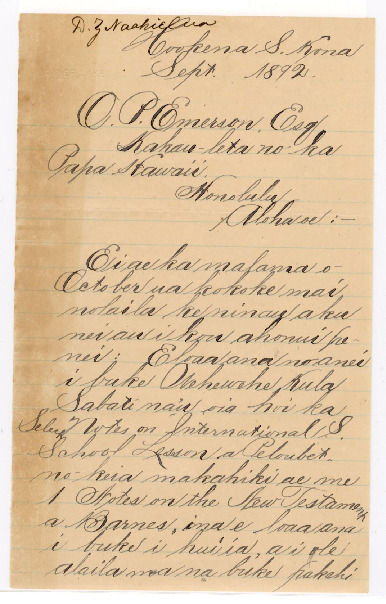 D. Z Naahielua
Hookena S. Kona
Sept. 1892.
O. P. Emerson, Esq
Kakau-leta no ka
Papa Hawaii.
Honolulu
Aloha oe :—
Eia ae ka mahama o
October ua kokoke mai
nolaila, ke ninau aku
nei au i kou ahonui pe-
nei: E loaa ana no anei
i buke Wehewehe Kula
Sabati na'u, oia hoi ka
Select Notes on International S.
School Lesson, a Peloubet-
no keia makahiki ae me
1 Notes on the New Testament
a Barnes, ina e loaa ana
i buke i huiia, a i ole
alaila ma na buke pakahi